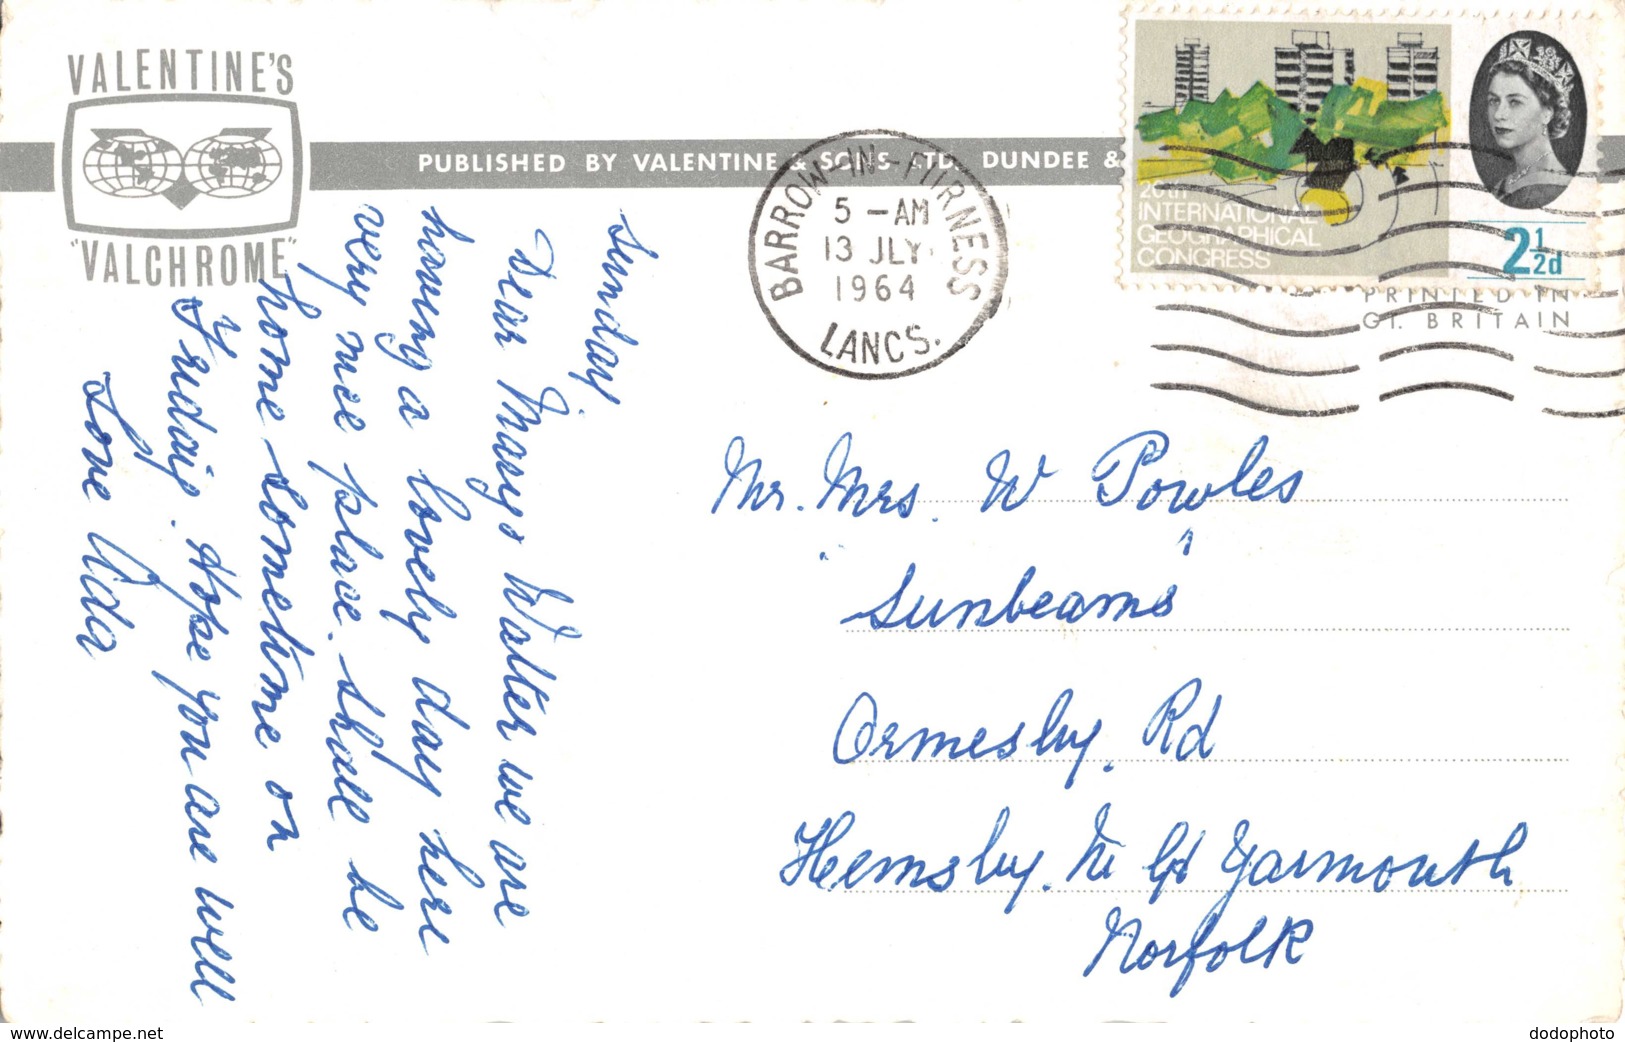 VALENTINE'S
"VALCHROME"
PUBLISHED BY VALENTINE & SONS LTD. DUNDEE &
BARROW-IN-FURNESS
5 -AM
13 JLY.
1964
LANCS.
20th
INTERNATIONAL
GEOGRAPHICAL
CONGRESS
2½d
PRINTED IN
GT. BRITAIN
Sunday
Dear Mary & Walter we are
having a lovely day here
very nice place. Shall be
home sometime on
Friday. Hope you are well
Love Ada
Mr. Mrs. W Powles
"Sunbeams"
Ormesby. Rd
Hemsby. Nr Gt Yarmouth
Norfolk
www.delcampe.net
dodophoto